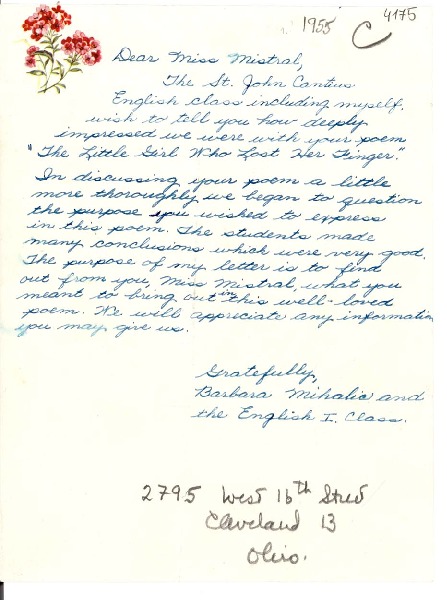 1955
C
4175
Dear Miss Mistral,
The St. John Cantius
English class including myself,
wish to tell you how deeply
impressed we were with your poem
"The Little Girl Who Lost Her Finger".
In discussing your poem a little
more thoroughly we began to question
the purpose you wished to express
in this poem. The students made
many conclusions which were very good.
The purpose of my letter is to find
out from you, Miss Mistral, what you
meant to bring out in this well-loved
poem. We will appreciate any information
you may give us.
Gratefully,
Barbara Mihalic and
the English I. Class.
2795 West 16th Street
Cleveland 13
Ohio.